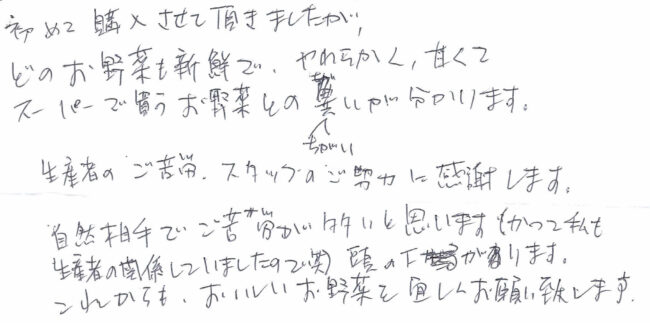 初めて購入させて頂きましたが、
どのお野菜も新鮮で、やわらかく、甘くて
スーパーで買うお野菜との違いが分かります。
ちがい
生産者のご苦労、スタッフのご努力に感謝します。
自然相手でご苦労が多いと思います(かつて私も
生産者の関係していましたので笑)頭の下がります。
これからも、おいしいお野菜を宜しくお願い致します。